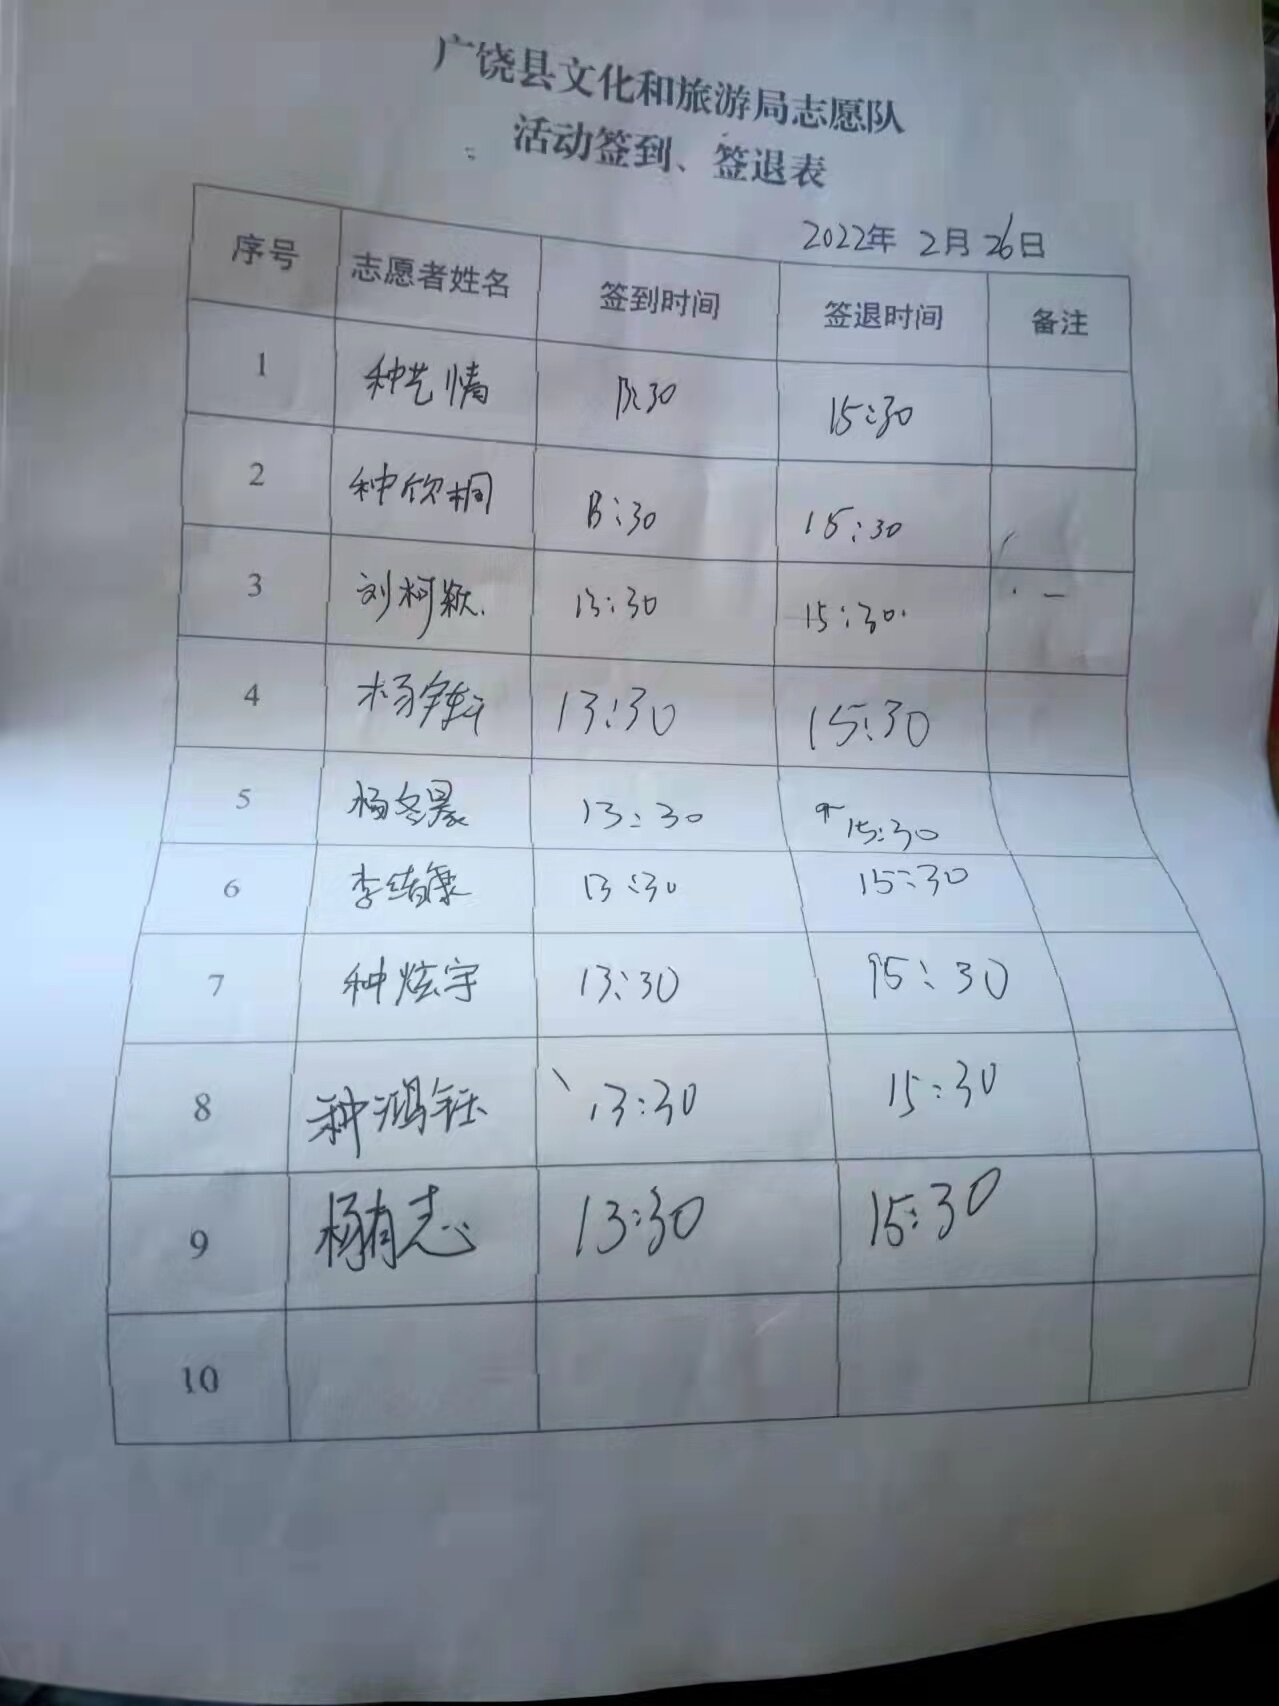 广饶县文化和旅游局志愿队
活动签到、签退表
2022年 2月 26日
序号 志愿者姓名 签到时间 签退时间 备注
1 种艺情 13:30 15:30
2 种欣桐 13:30 15:30
3 刘柯颖 13:30 15:30
4 杨 13:30 15:30
5 杨冬晨 13:30 15:30
6 李绪康 13:30 15:30
7 种炫宇 13:30 15:30
8 种鸿钰 13:30 15:30
9 杨有志 13:30 15:30
10